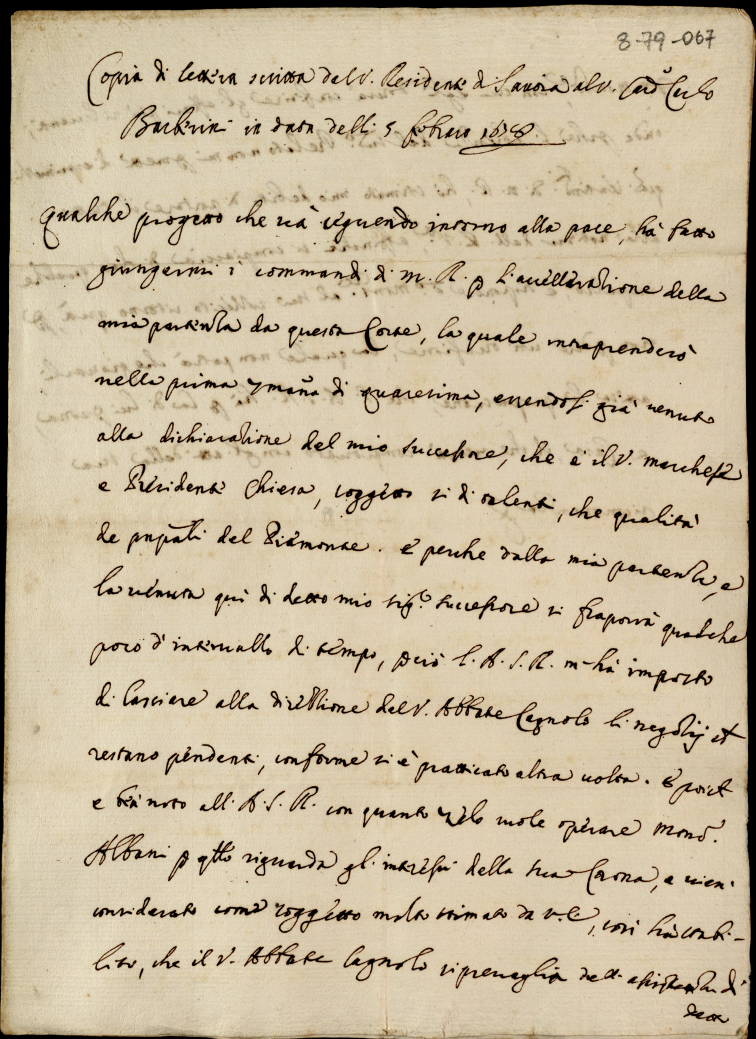 8-79-067
Copia di lettera scritta dal S. Residente di Savoia al S. Card. Carlo
Barberini in data delli 5 febraro
Qualche progetto che và seguendo intorno alla pace, hà fatto
giungermi i commandi di M. R. p l'accelleratione della
mia partenza da questa Corte, la quale intraprenderò
nella prima 7mana di quaresima, essendosi già venuto
alla dichiaratione del mio successore, che è il S. marchese
e Presidente Chiesa, soggetto sì di talenti, che qualità
de pnpali del Piemonte. E perche dalla mia partenza, e
la venuta quì di detto mio sigr. successore si fraporrà qualche
poco d'intervallo di tempo, però l'A. S. R. m'hà imposto
di lasciare alla direttione del S. Abbate Cagnolo li negotij ch
restano pendenti, conforme si è pratticato altra volta. E poich
e ben noto all'A. S. R. con quanto zelo vuole operare Mons.r
Albani p qto riguarda gl'interessi della sua Corona, e vien
considerato come soggetto molto stimato da V. E., così hà stabi-
lito, che il S. Abbate Cagnolo si prevaglia dell'assistenza di
detto